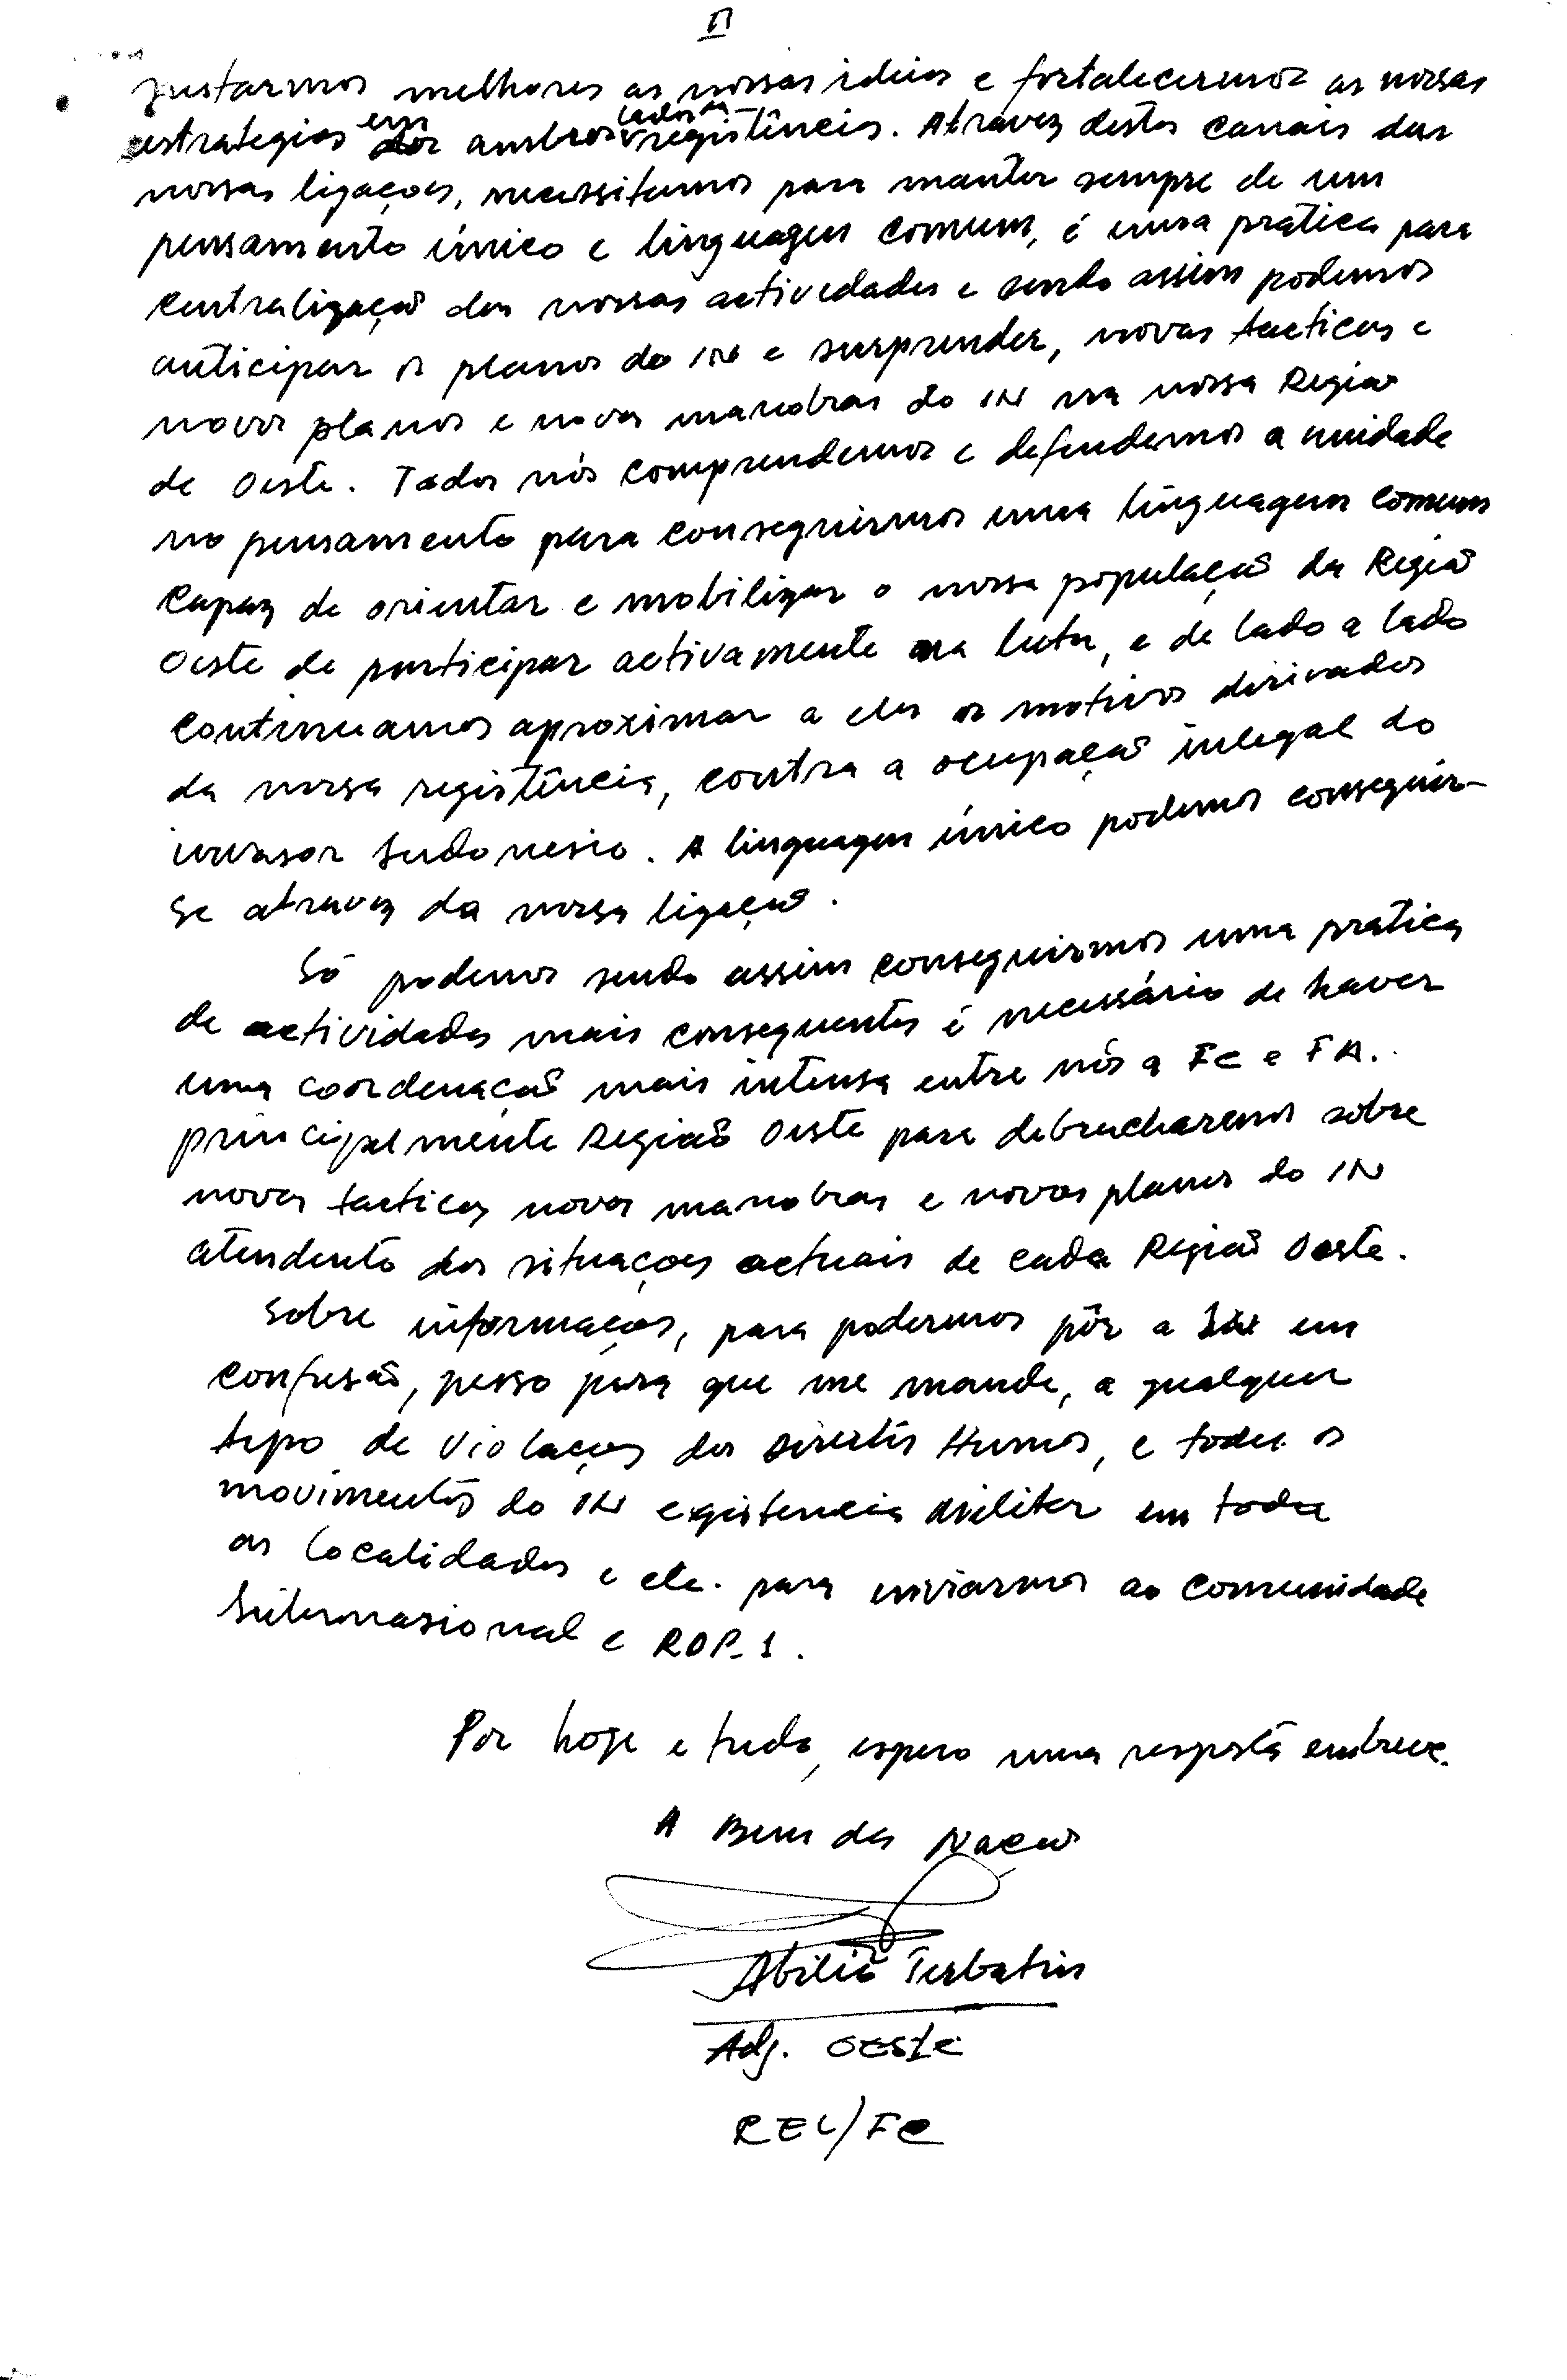 II
justarmos melhores as nossas ideias e fortalecermos as nossas
estrategias em ambos lados da registência. Atravez destes canais das
nossas ligações, necessitamos para manter sempre de um
pensamento único e linguagem comum, é uma pratica para
centralização das nossas actividades e sendo assim podemos
anticipar os planos do IN e surprender, novas tacticas e
novos planos e novas manobras do IN na nossa Região
de Oeste. Todos nós comprendemos e defendemos a unidade
no pensamento para conseguirmos uma linguagem comum
capaz de orientar e mobilizar o nossa população da Região
Oeste de participar activamente na luta, e de lado a lado
continuamos aproximar a eles os motivos derivados
da nossa registência, contra a ocupação inlegal do
invasor Indonesio. A linguagem único podemos conseguir-
se atravez da nossa ligação.
Só podemos sendo assim conseguirmos uma pratica
de actividades mais consequentes é necessário de haver
uma coordenação mais intensa entre nós a FC e FA.
principalmente Região Oeste para debrucharemos sobre
novas tacticas novas manobras e novos planos do IN
atendento das situações actuais de cada Região Oeste.
Sobre informações, para podermos pôr a em
confusão, pesso para que me mande, a qualquer
tipo de Violações dos Direitos Humos, e todos os
movimentos do IN existencia militar em todas
as localidades e etc. para enviarmos ao comunidade
Internasional e RDP-1.
Por hoje e tudo, espero uma resposta embreve.
A Bem da Nação
Abílio
Adj. Oeste
REL/FC